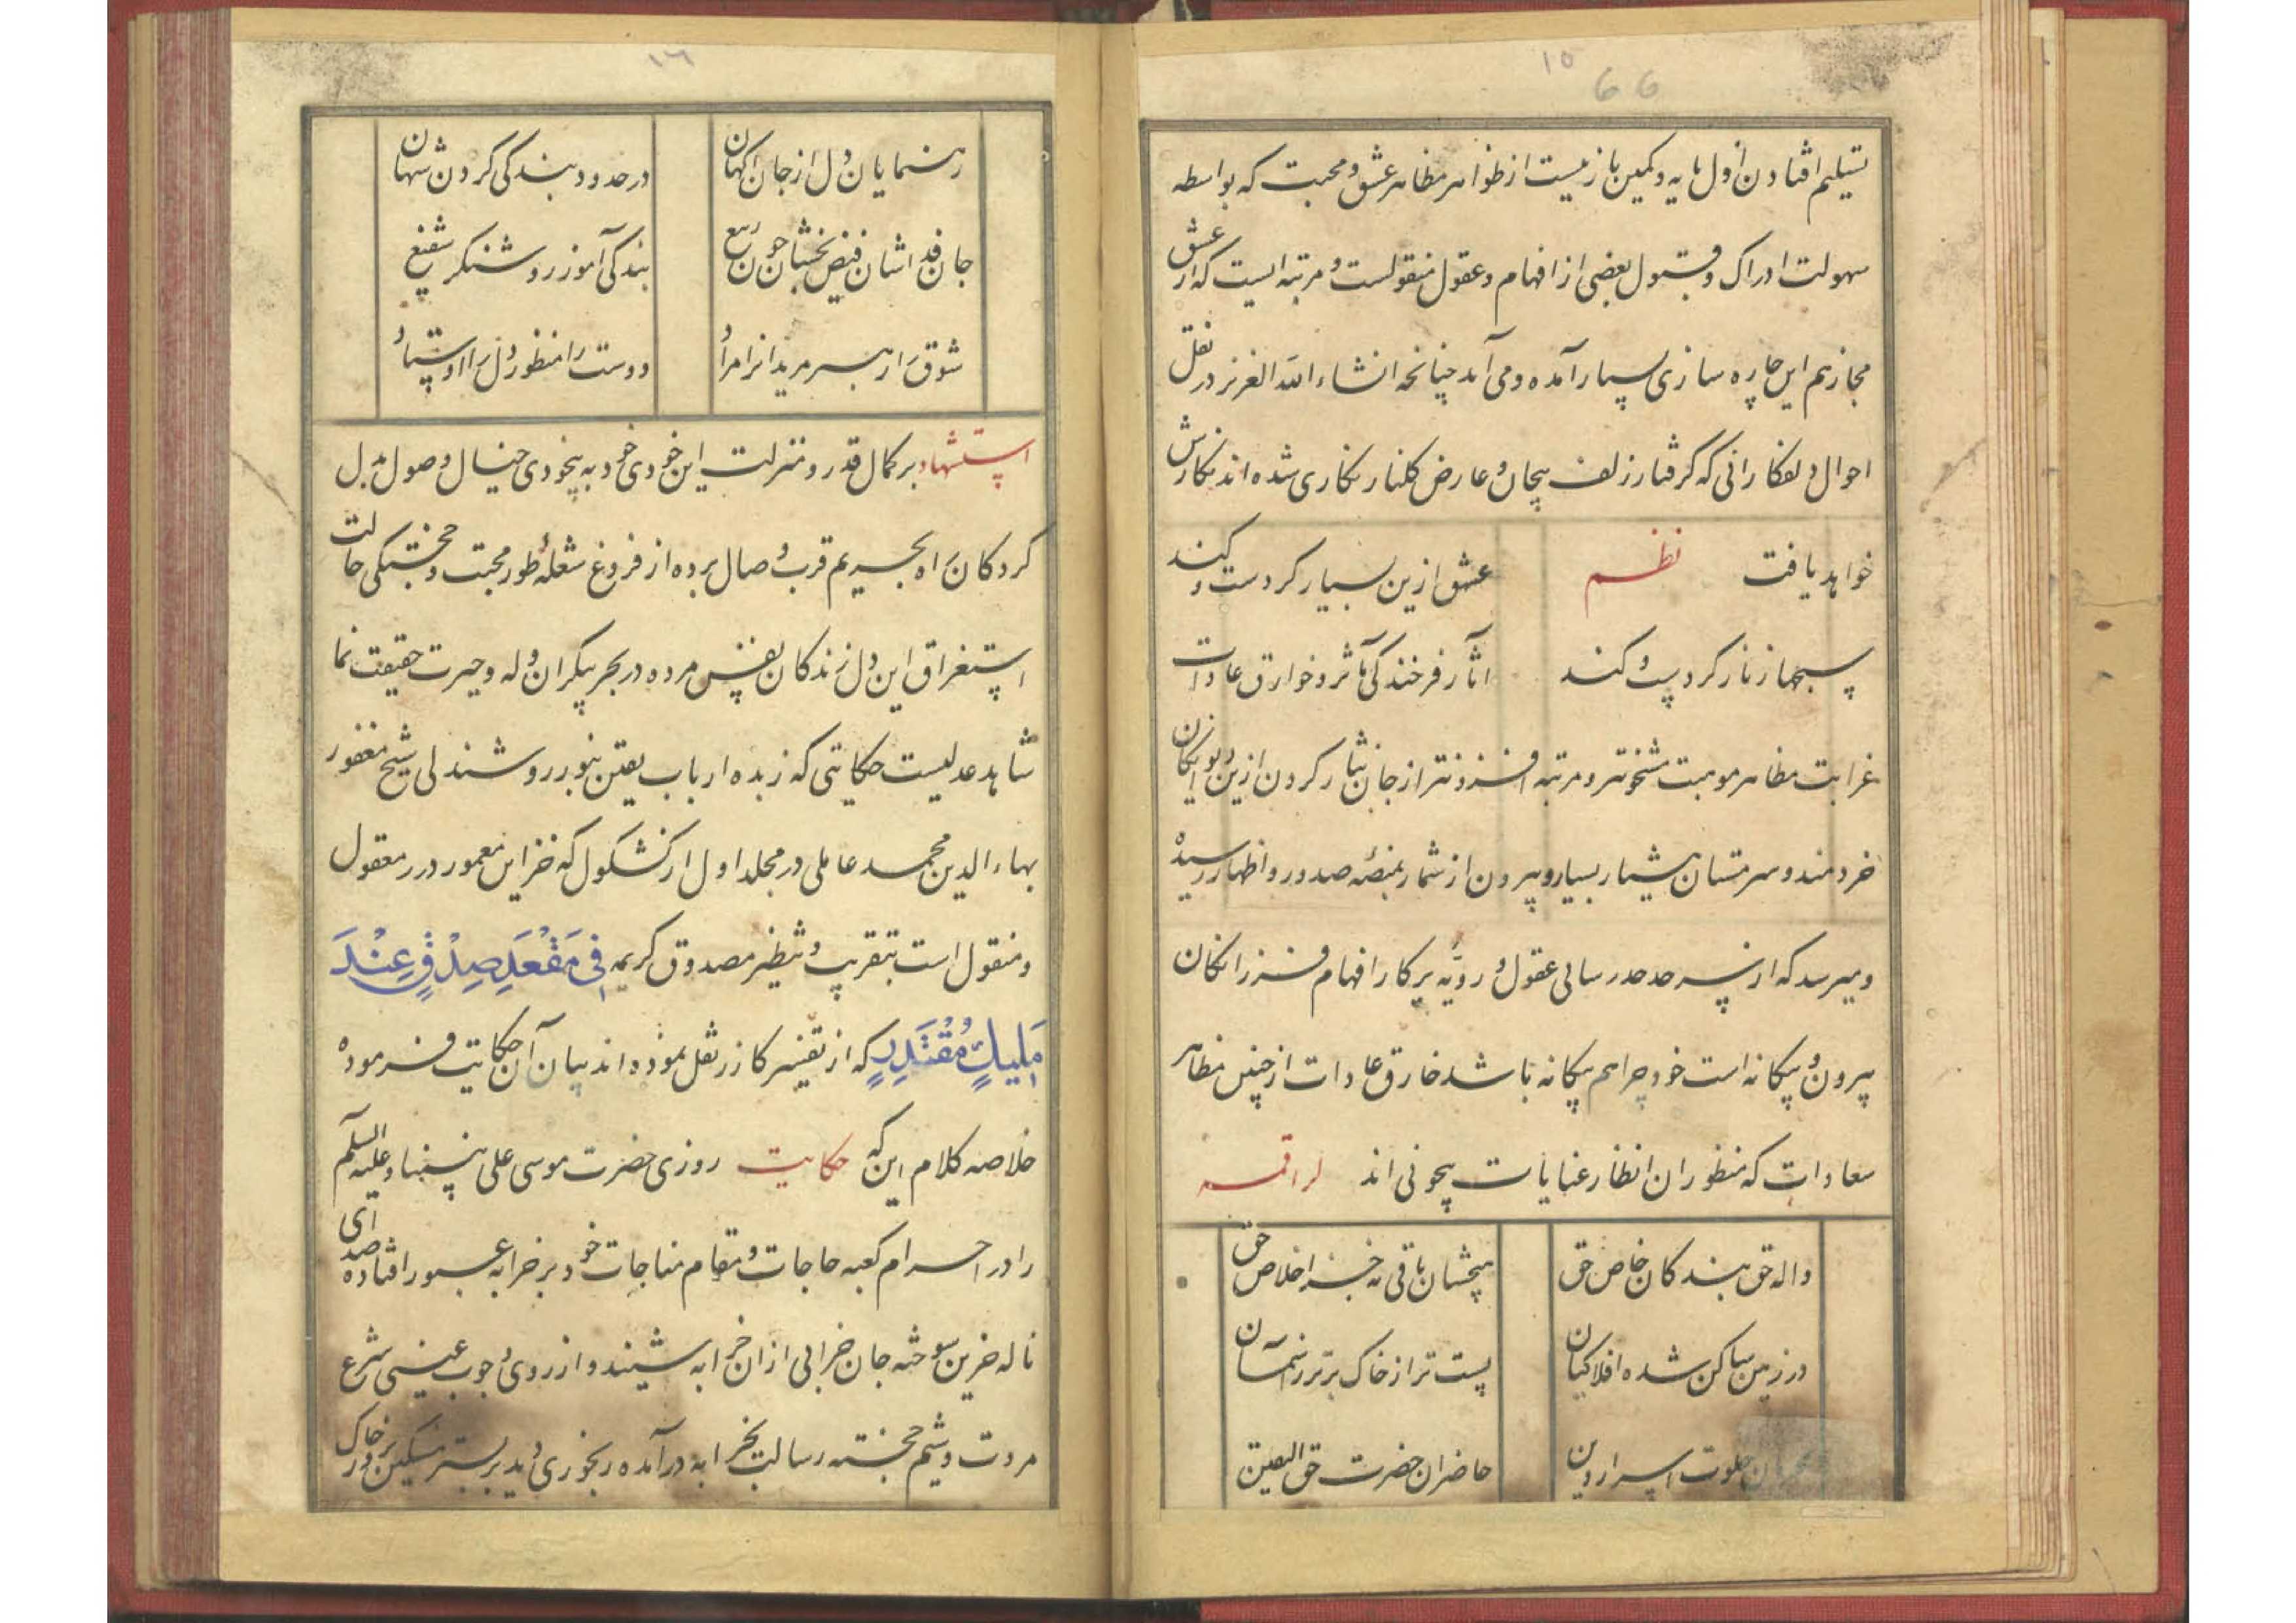 ۱۵
66
تسلیم افتادن اول مایه و کمین بازیست از ظواهر مظاهر عشق و محبت که بواسطه
سهولت ادراک و قبول بعضی از افهام و عقول منقولست و مرتبه ایست که از عشق
مجاز هم این چاره سازی بسیار آمده و می آید چنانچه انشاء الله العزیز در نقل
احوال دلفکارانی که گرفتار زلف پیچان و عارض گلنار نگاری شده اند نگارش
خواهد یافت نظم عشق ازین بسیار کردست و کند
سبحها زنار کردست و کند آثار فرخندگی مآثر و خوارق عادات
غرابت مظاهر موهبت مشحونتر و مرتبه افزونتر از جان نثار کردن ازین دیوانکان
خردمند و سرمستان هشیار بسیار و بیرون از شمار بمنصه صدور و اظهار رسیده
و میرسد که از سرحد حد رسائی عقول و رویه پرکار افهام فرزانکان
بیرون و بیکانه است خود چرا هم بیکانه باشد خارق عادات از چنین مظاهر
سعادات که منظوران انظار عنایات بیچونی اند لراقمه
واله حق بندکان خاص حق هیچشان باقی نه جز اخلاص حق
در زمین ساکن شده افلاکیان پست تر از خاک برتر ز آسمان
خلوت اسرار دین حاضران حضرت حق الیقین
۱۶
رهنمایان دل از جان اکهان در حدود بندکی کردن شهان
جان فدا شان فیض بخشان چون ربیع بندکی آموز روشنکر شفیع
شوق را رهبر مریدانرا مراد دوست را منظور دل را اوستاد
استشهاد بر کمال قدر و منزلت این خودی خود به بیخودی خیال وصول بدل
کردکان راه بحریم قرب وصال برده از فروغ شعله طور محبت و خجستکی حالت
استغراق این دل زندکان نفس مرده در بحر بیکران وله و حیرت حقیقت نما
شاهد عدلیست حکایتی که زبده ارباب یقین بنور روشندلی شیخ مغفور
بهاء الدین محمد عاملی در مجلد اول از کشکول که خزاین معمور درر معقول
و منقول است بتقریب و تنظیر مصدوق کریمه فِی مَقْعَدِ صِدْقٍ عِنْدَ
مَلِیكٍ مُقْتَدِرٍ که از تفسیر کازر نقل نموده اند بیان آن حکایت فرموده
خلاصه کلام این که حکایت روزی حضرت موسی علی نبینا و علیه السلم
را در احرام کعبه حاجات و مقام مناجات خود بر خرابه عبور افتاده صدای
ناله حزین سوخته جان خرابی از ان خرابه شنید و از روی وجوب عینی شرع
مروت و شیم خجسته رسالت بخرابه درآمده رنجوری دید بر بستر مسکین بر خاک